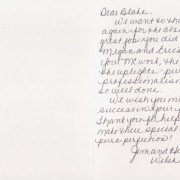 Dear Blake,
We want to th
again, for the abs
great job you did
Megan and Eric's
your MC work, the
the uplights - pure
professionalism
so well done.
We wish you m
success in your
Thank you for help
make their special
pure perfection!
Jim and